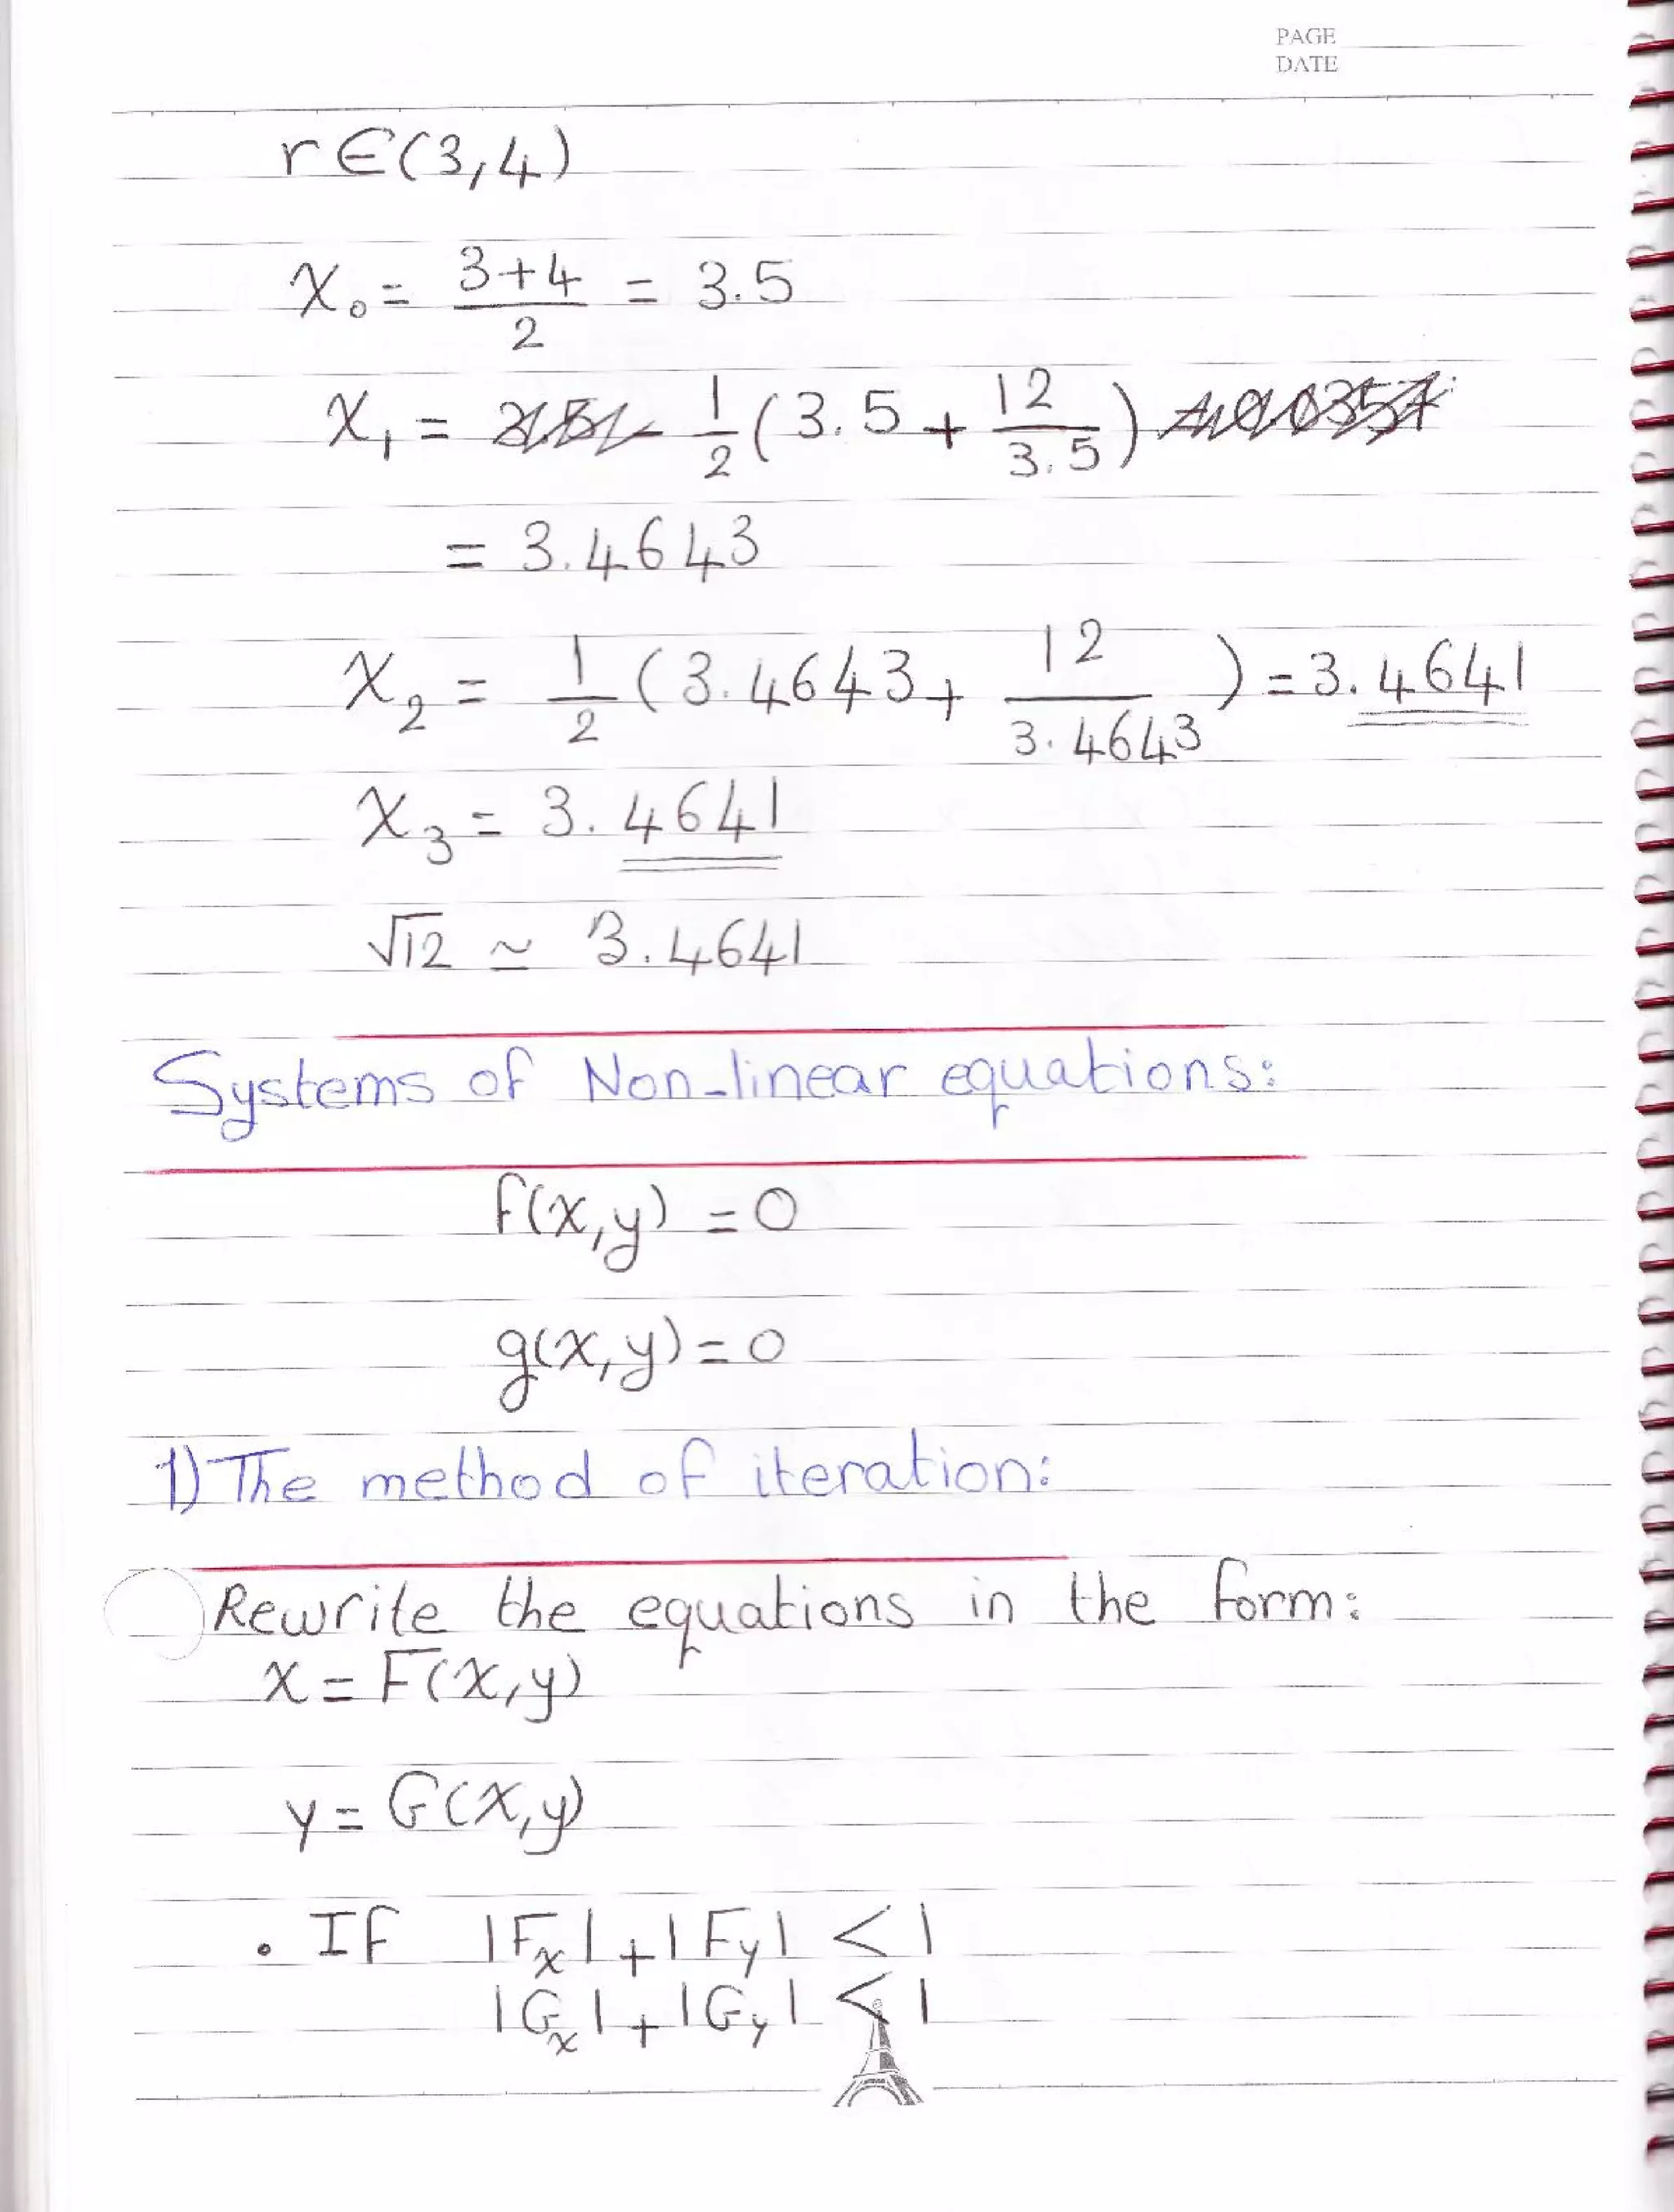 PAGE
DATE
r∈(3,4)
x₀ = (3+4)/2 = 3.5
x₁ = 1/2 (3.5 + 12/3.5)
= 3.4643
x₂ = 1/2 (3.4643 + 12/3.4643) = 3.4641
x₃ = 3.4641
√12 ≃ 3.4641
Systems of Non-linear equations:
f(x,y) = 0
g(x,y) = 0
1) The method of iteration:
Rewrite the equations in the form:
x = F(x,y)
y = G(x,y)
. If |Fx| + |Fy| < 1
|Gx| + |Gy| < 1